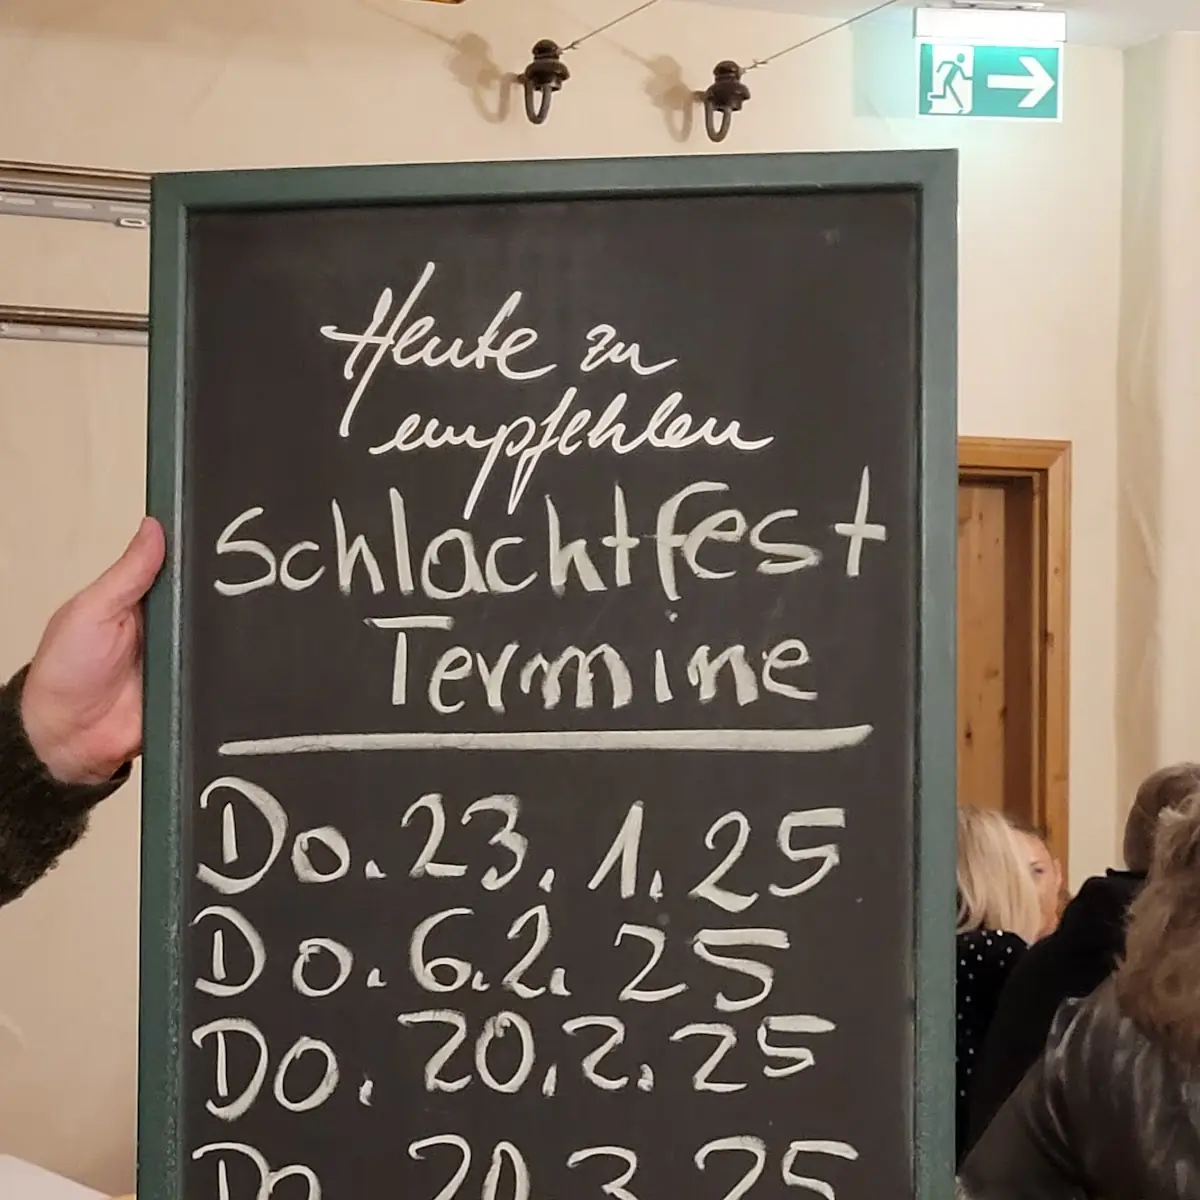 Heute zu
empfehlen
Schlachtfest
Termine
Do. 23. 1. 25
Do. 6.2. 25
Do. 20.2.25
Do. 20.3.25